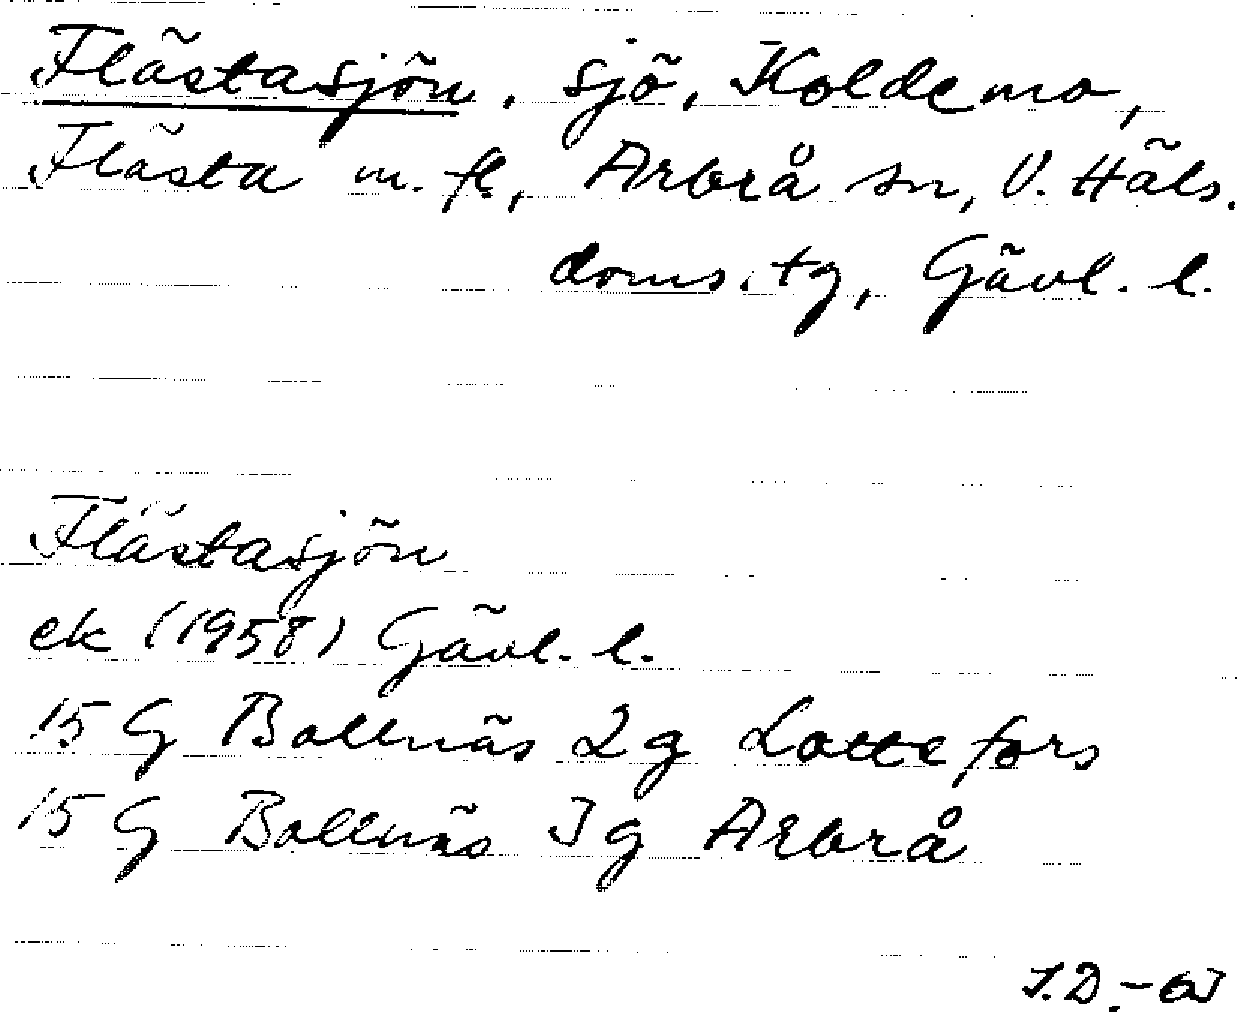 Flästasjön, sjö, Koldemo,
Flästa m. fl., Arbrå sn, V. Häls.
doms. tg, Gävl. l.
Flästasjön
ek (1958) Gävl. l.
15 G Bollnäs 2g Lottefors
15 G Bollnäs 3g Arbrå
I.D.-63